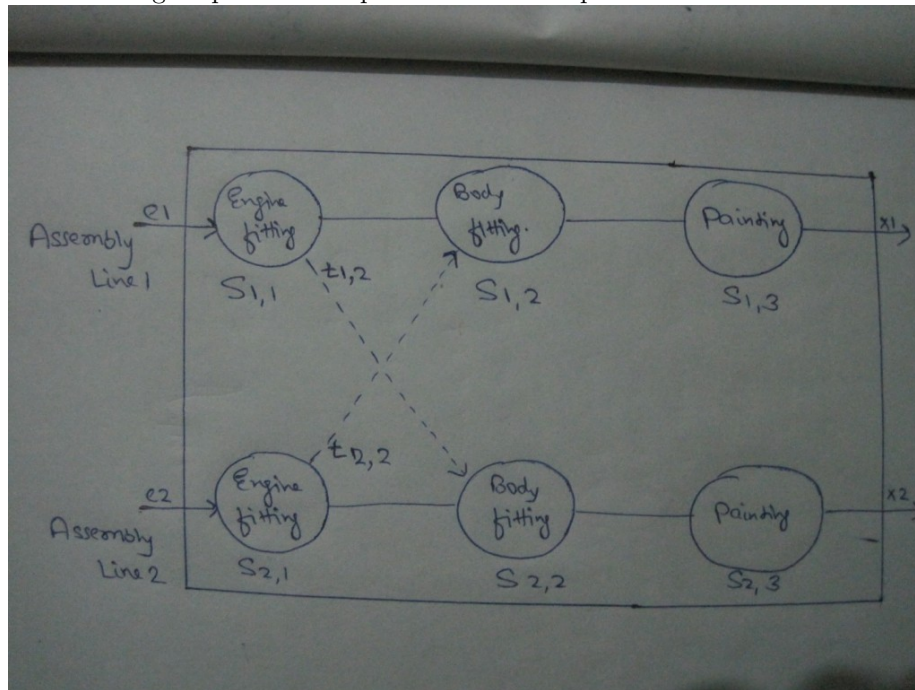 e1
Assembly
Line 1
Engine
fitting
S1,1
t1,2
Body
fitting.
S1,2
Painting
S1,3
x1
e2
Assembly
Line 2
Engine
fitting
S2,1
t2,2
Body
fitting
S2,2
Painting
S2,3
x2